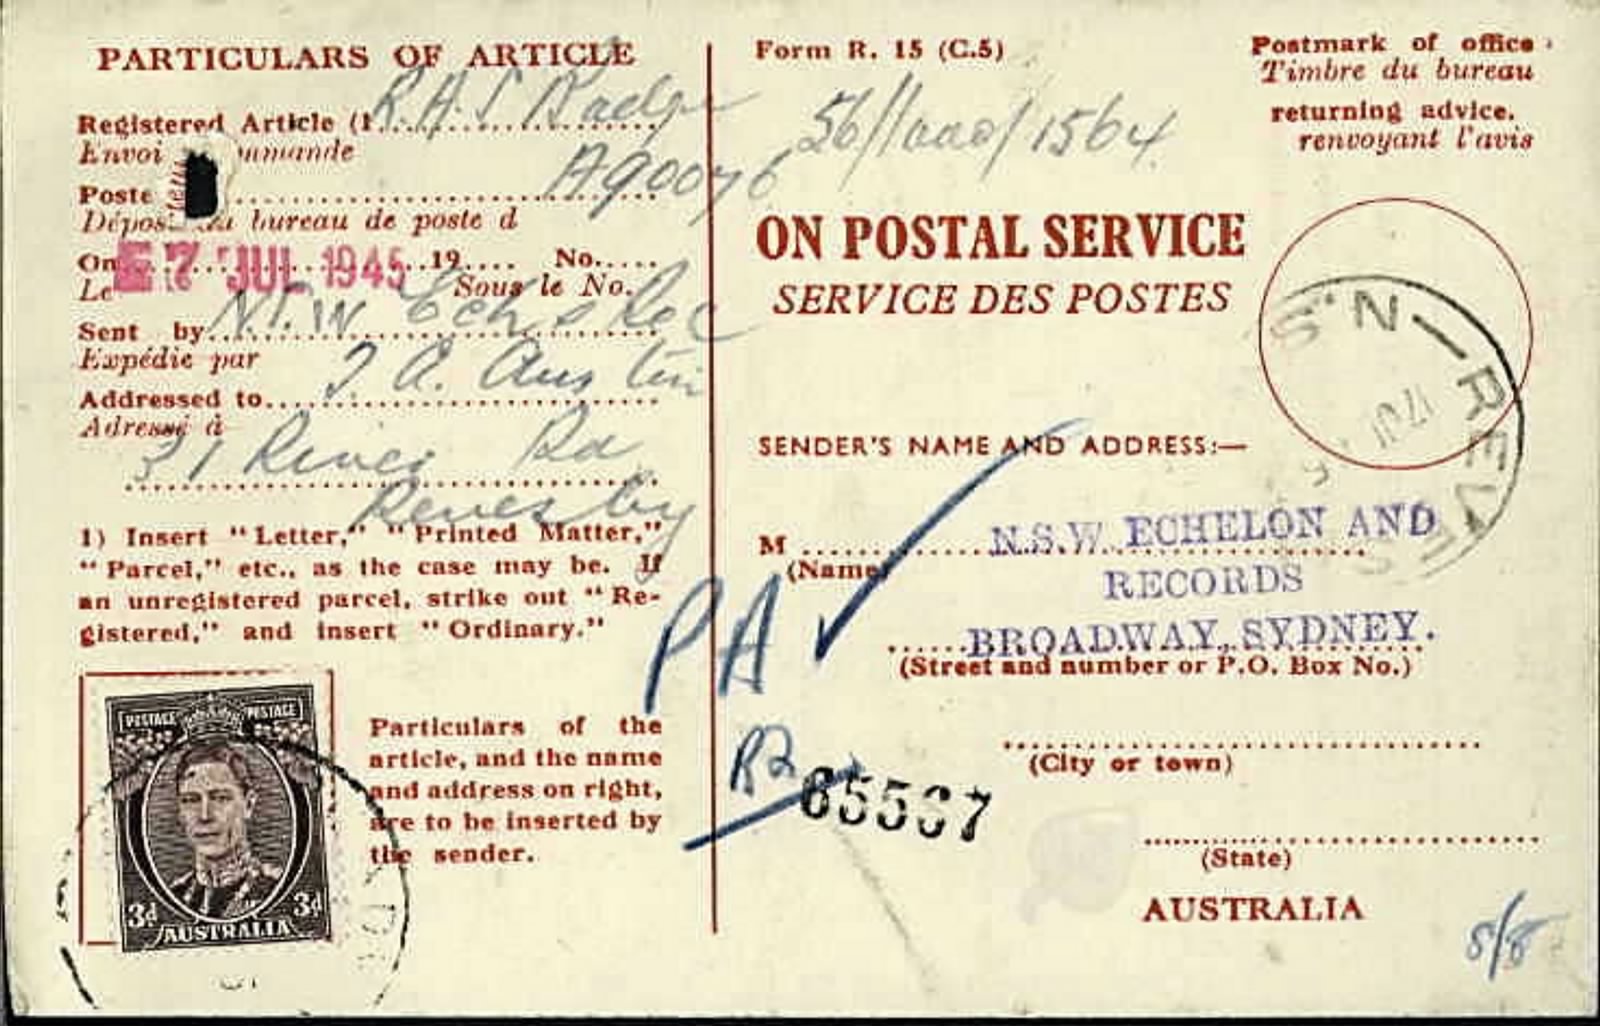 PARTICULARS OF ARTICLE
Registered Article (1
R.A.S Badge
Envoi ommande
A90076
Poste
Dépos bureau de poste d
On 19.... No.....
7 JUL 1945
Le Sous le No.
Sent by N.S.W Ech & Rec
Expédie par
Addressed to J A. Austin
Adressé à
31 River Rd
Revesby
1) Insert "Letter," "Printed Matter,"
"Parcel," etc., as the case may be. If
an unregistered parcel, strike out "Re-
gistered," and insert "Ordinary."
POSTAGE POSTAGE
3d 3d
AUSTRALIA
Particulars of the
article, and the name
and address on right,
are to be inserted by
the sender.
Form R. 15 (C.5)
Postmark of office
Timbre du bureau
returning advice.
renvoyant l'avis
1564
ON POSTAL SERVICE
SERVICE DES POSTES
REVES
N.S
17 JL
SENDER'S NAME AND ADDRESS:—
M N.S.W. ECHELON AND
(Name)
RECORDS
BROADWAY, SYDNEY.
(Street and number or P.O. Box No.)
PA
R2
65567
(City or town)
(State)
AUSTRALIA
8/8